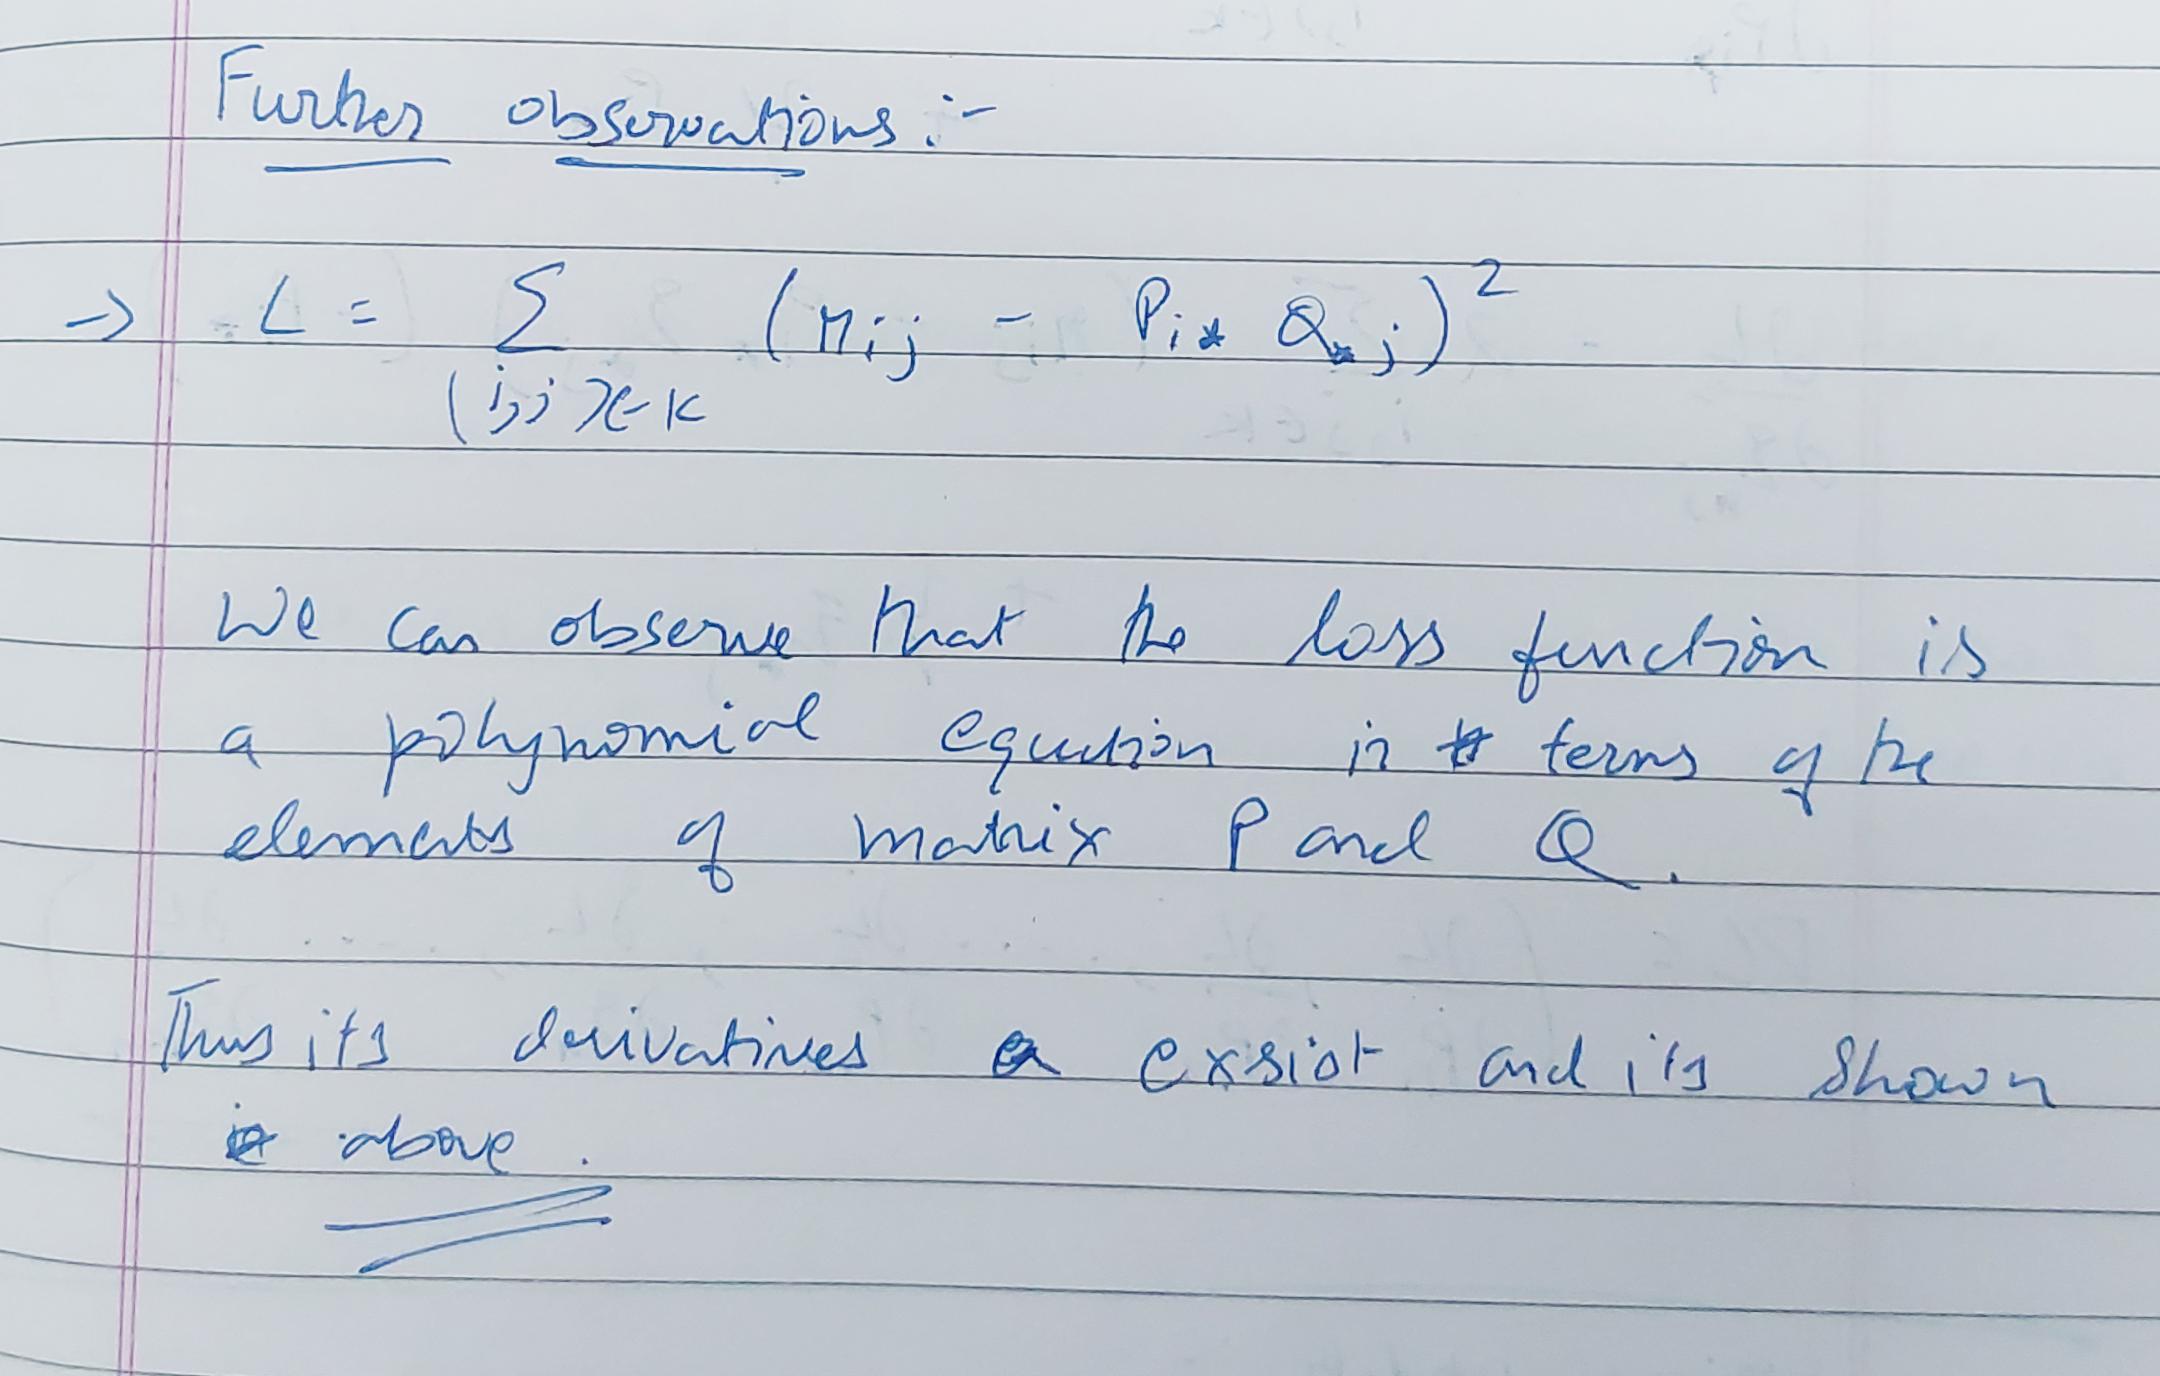 Further observations :-
→ L = Σ (Mij - Pi* Q*j)²
(i,j) ∈ K
We can observe that the loss function is
a polynomial equation in terms of the
elements of matrix P and Q.
Thus its derivatives exsist and its shown
above.